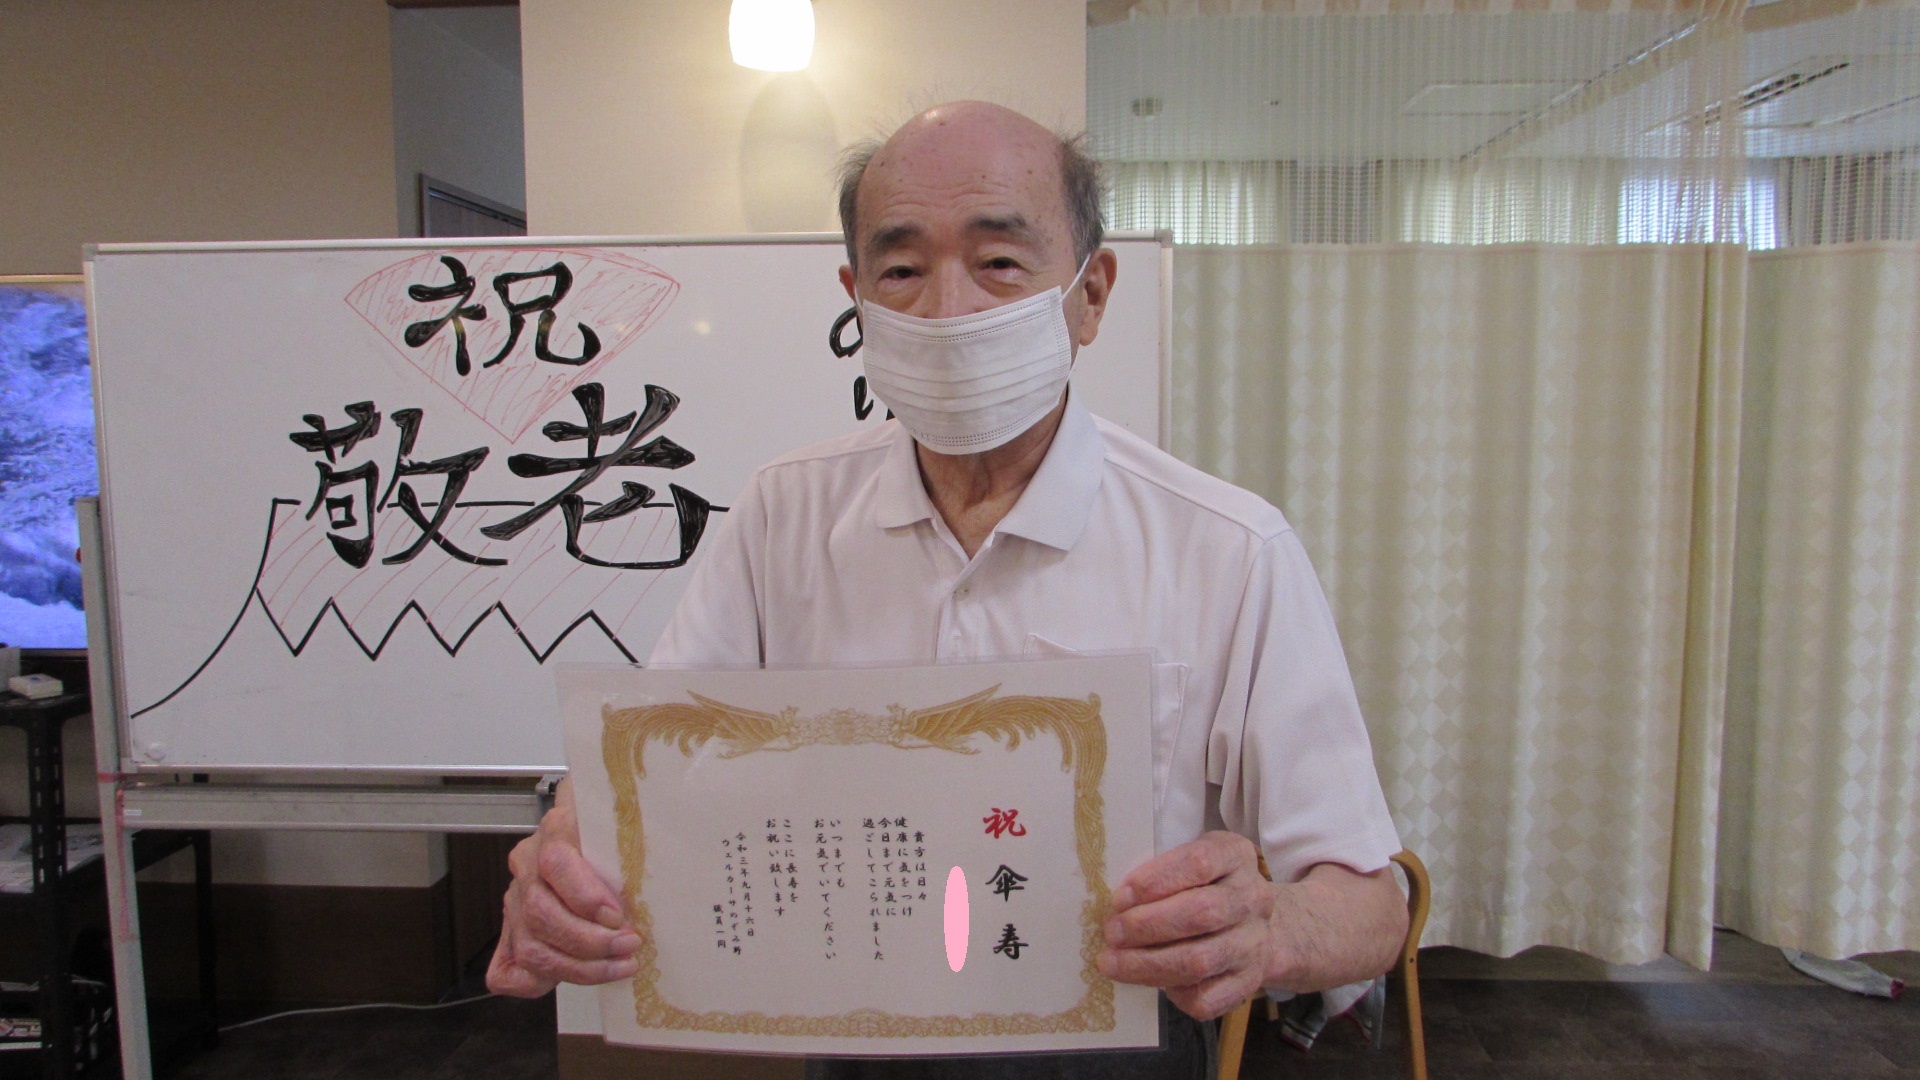 祝
敬老
祝 傘寿
貴方は日々
健康に気をつけ
今日まで元気に
過ごしてこられました
いつまでも
お元気でいてください
ここに長寿を
お祝い致します
令和三年九月十六日
ウェルカーサのぞみ野
職員一同